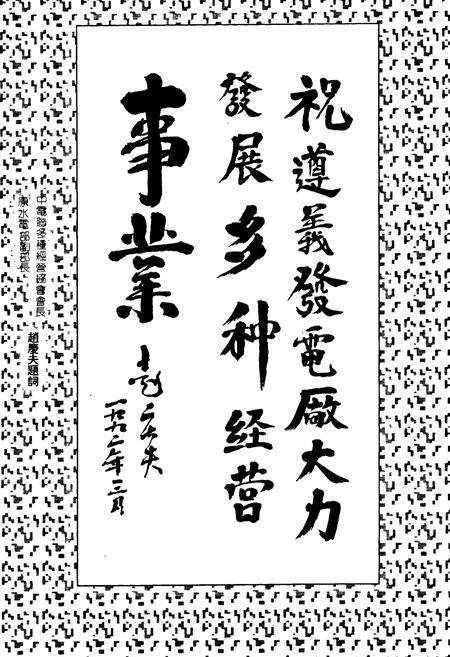 祝遵義發電廠大力
發展多种经营
事業
赵庆夫
一九九二年三月
中電聯多種經營協會會長
原水電部副部長
趙慶夫題詞